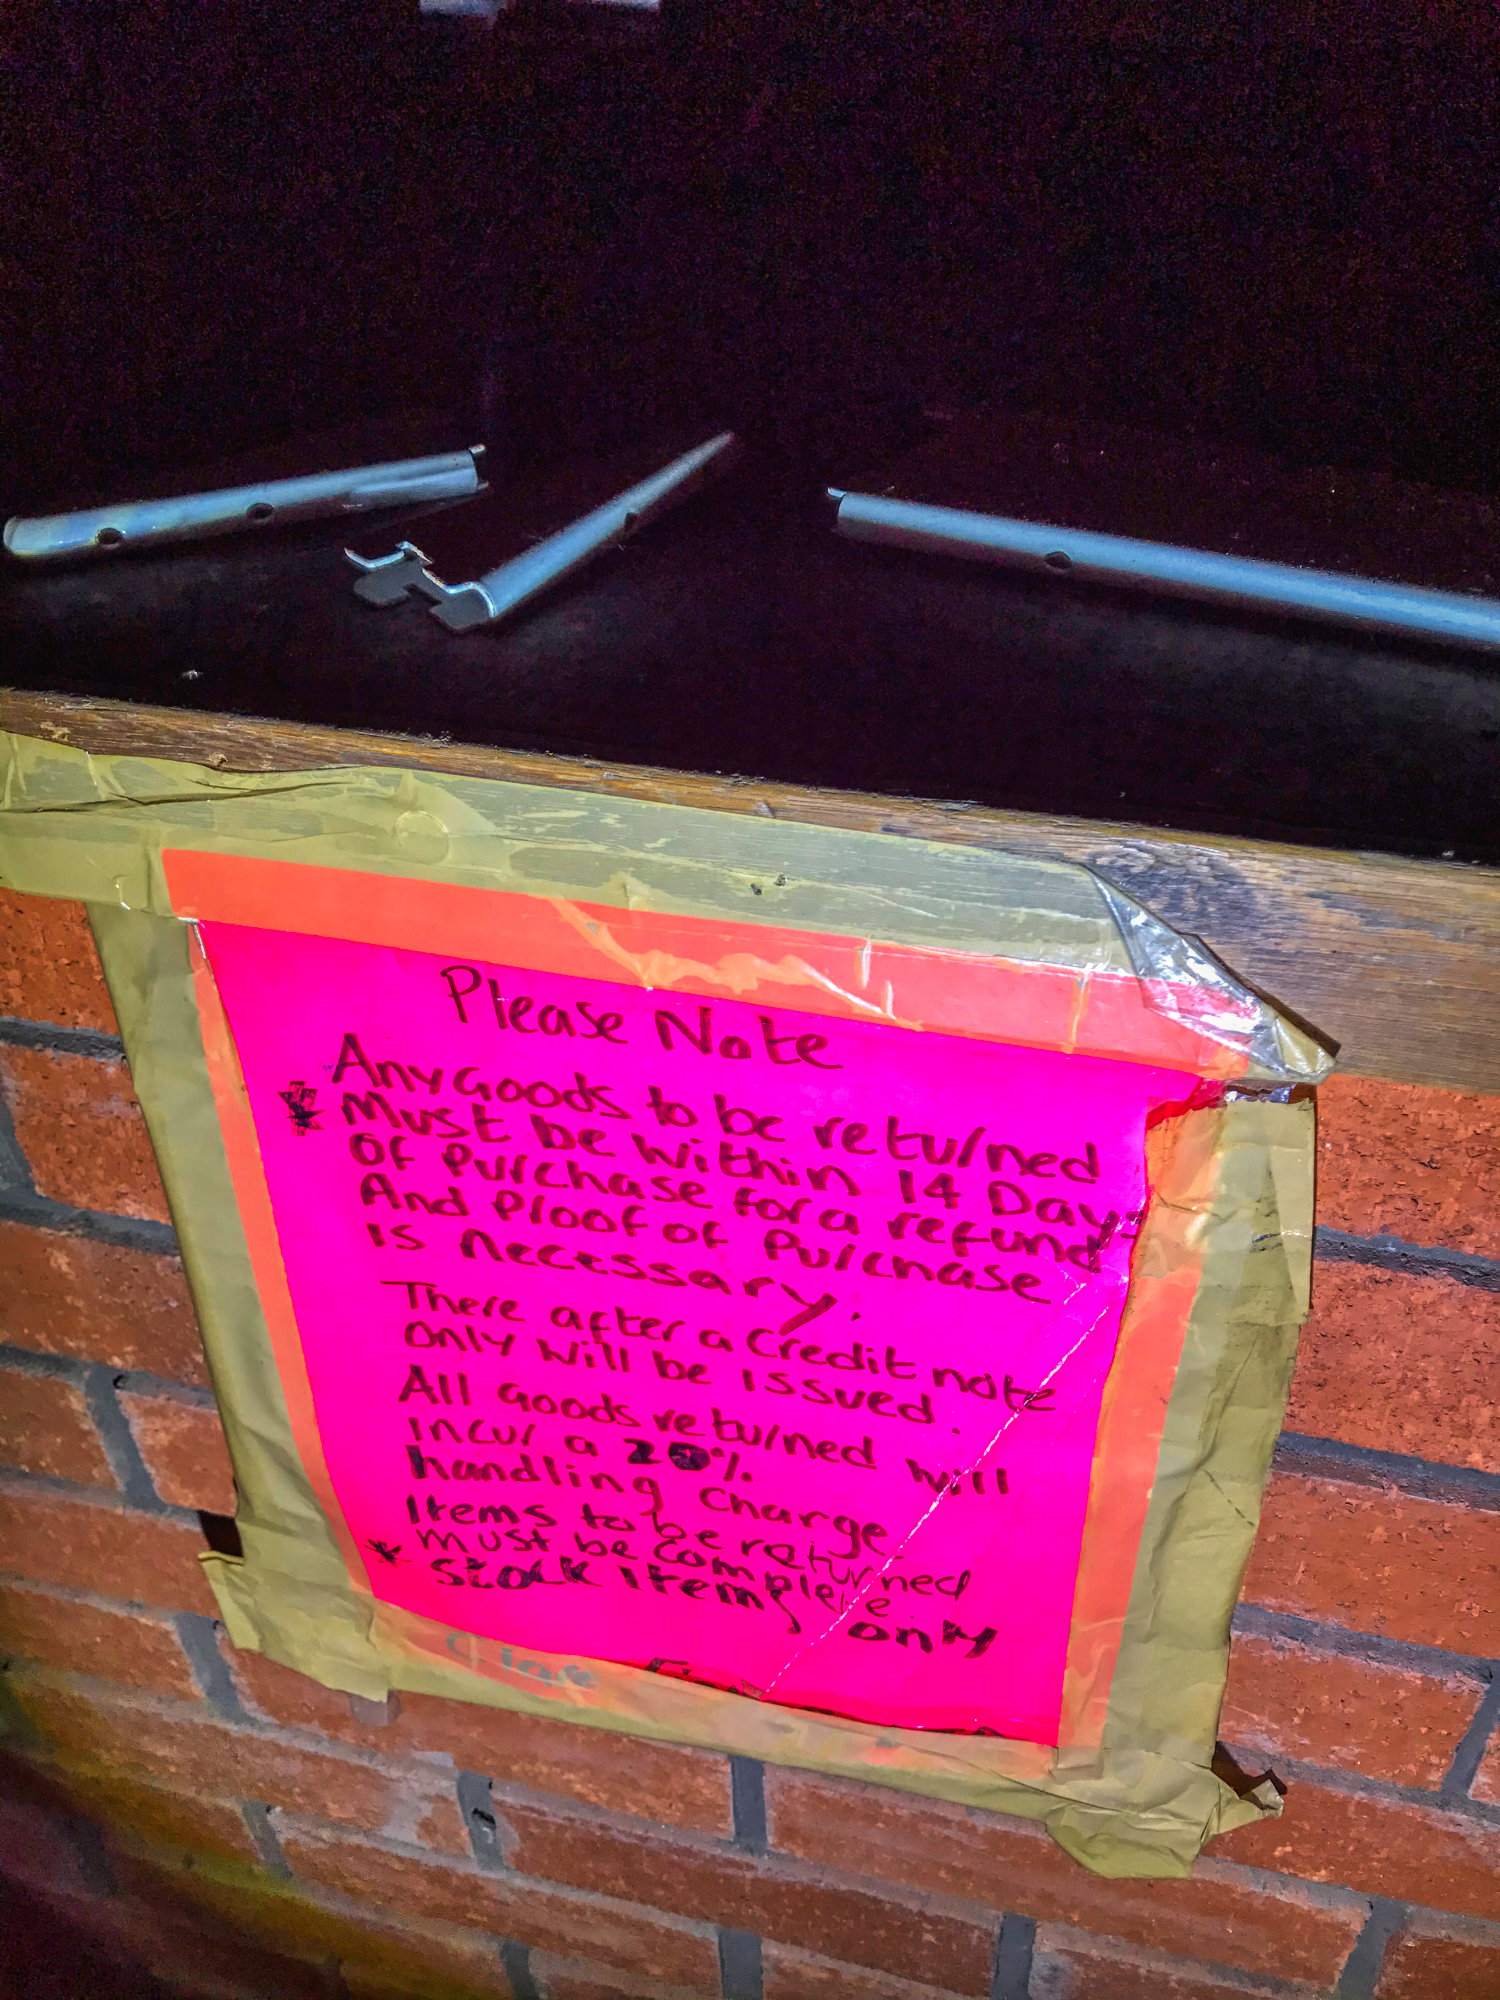 Please Note
Any Goods to be returned
* Must be within 14 Days
Of Purchase for a refund
And Proof of Purchase
is necessary.
There after a credit note
only will be issued.
All goods returned will
incur a 20%
handling charge
Items to be returned
must be complete.
* Stock items only